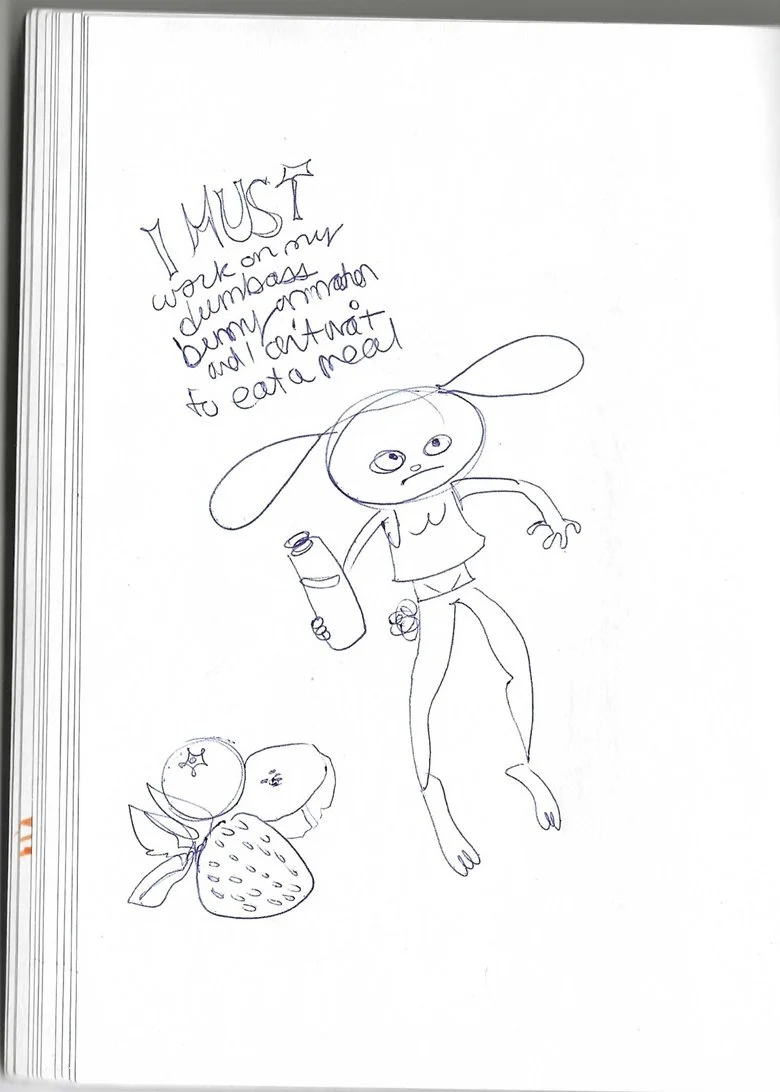 I MUST
work on my
dumbass
bunny animation
and I can't wait
to eat a meal